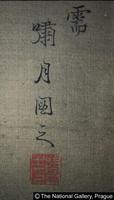 需
嘯月國之
© The National Gallery, Prague